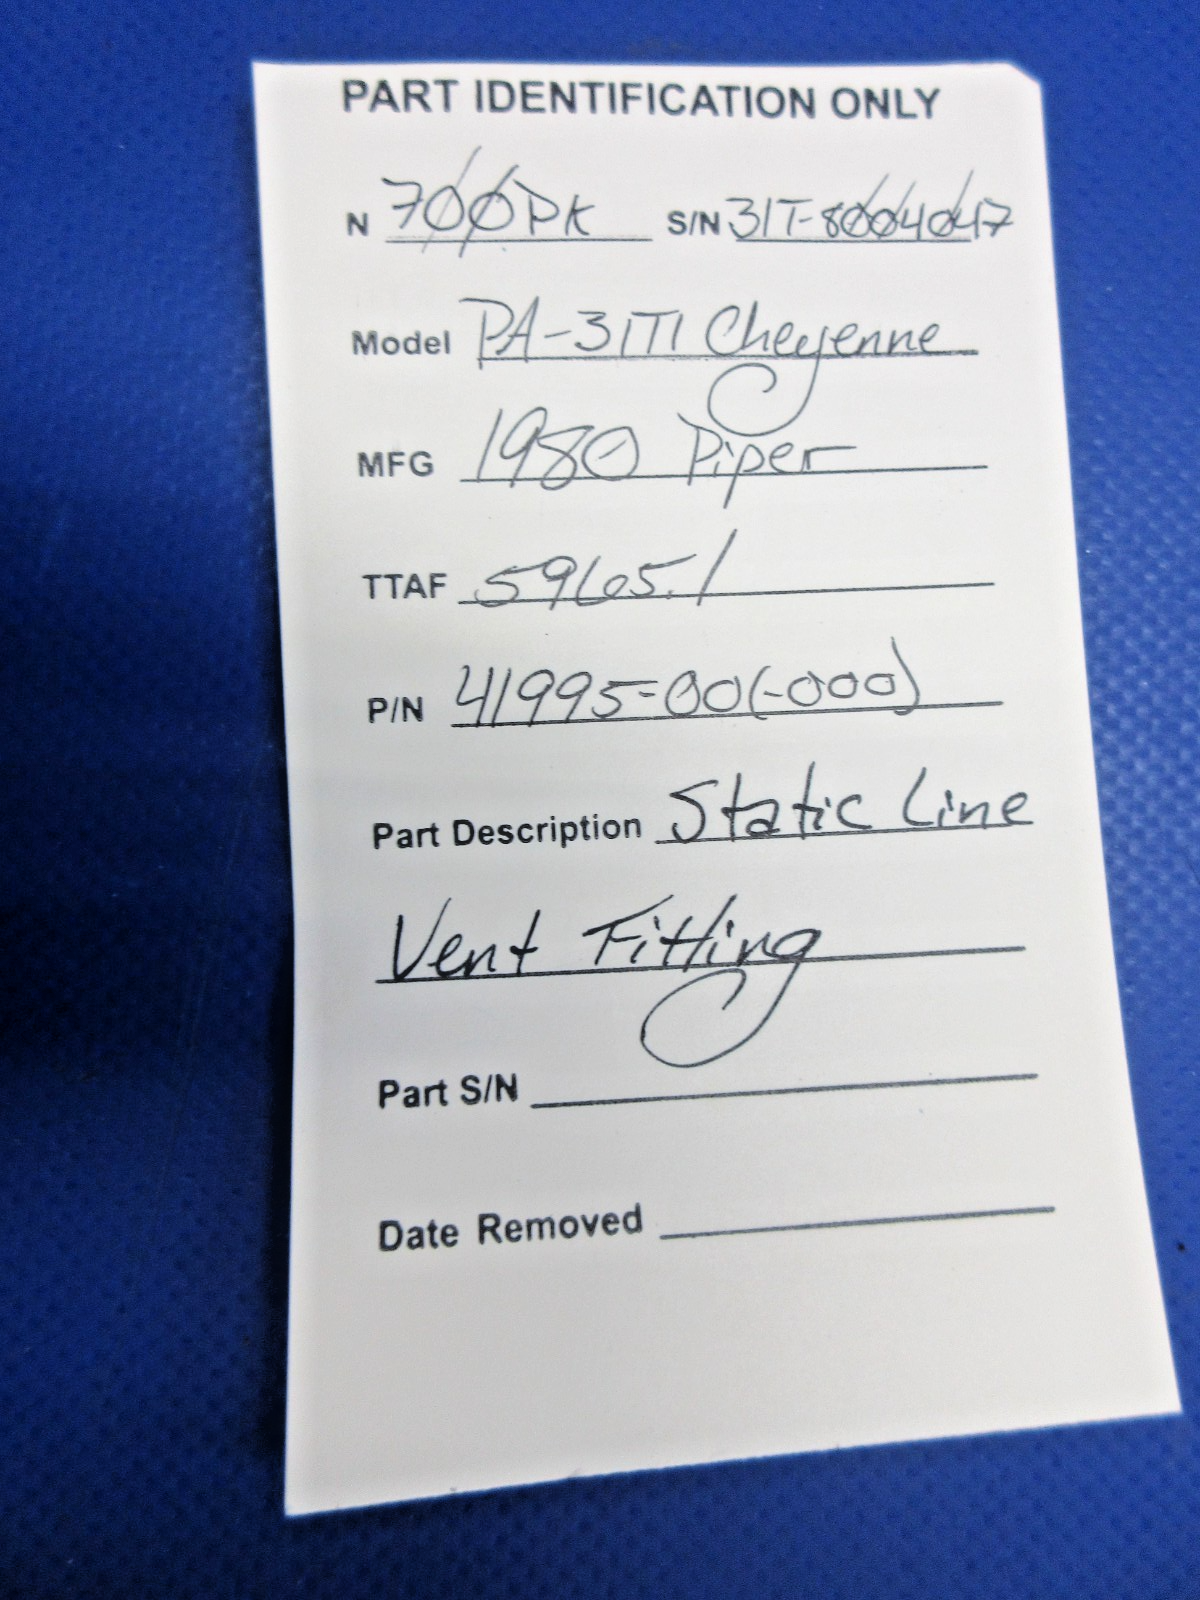 PART IDENTIFICATION ONLY
N 700PK S/N 31T-8004047
Model PA-31T1 Cheyenne
MFG 1980 Piper
TTAF 5965.1
P/N 41995-00(-000)
Part Description Static Line
Vent Fitting
Part S/N
Date Removed